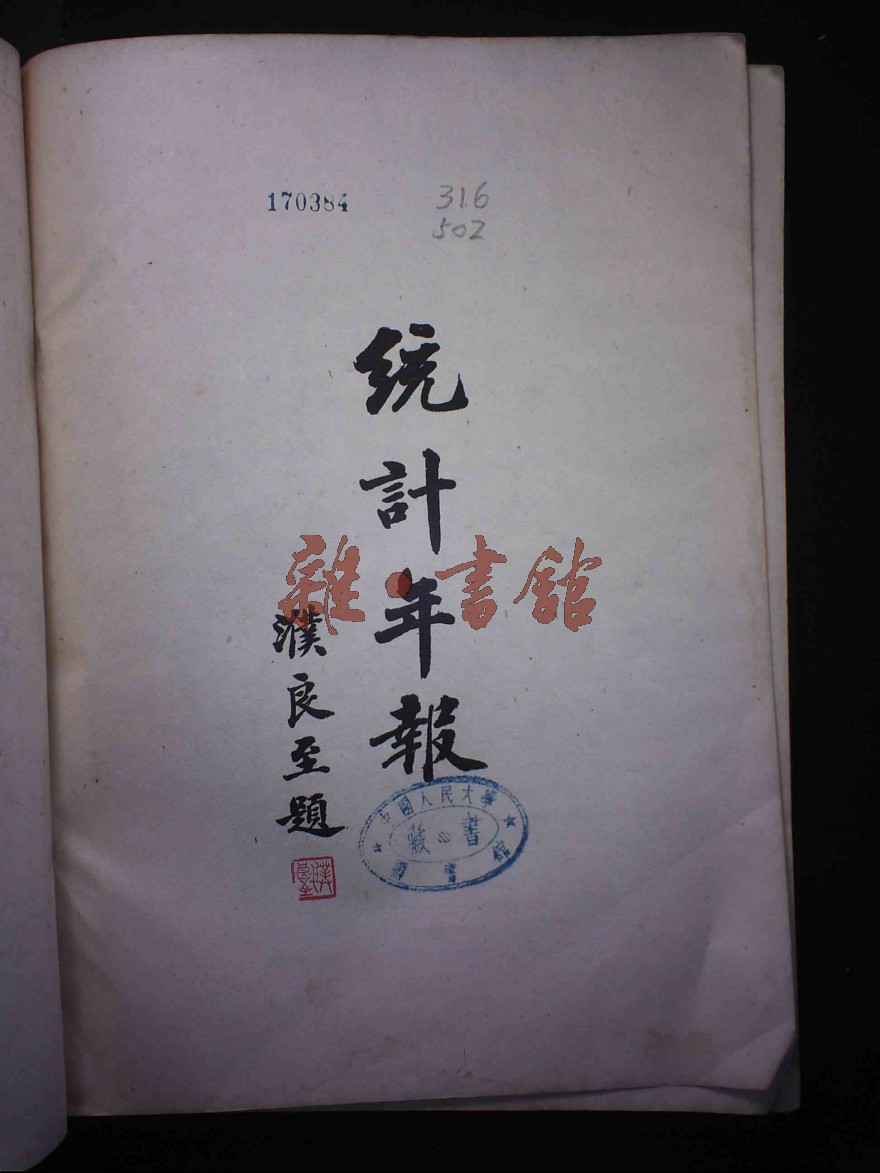 170384
316
502
統計年報
濮良至題
濮良至
雜·書館
中國人民大學
藏書
圖書館